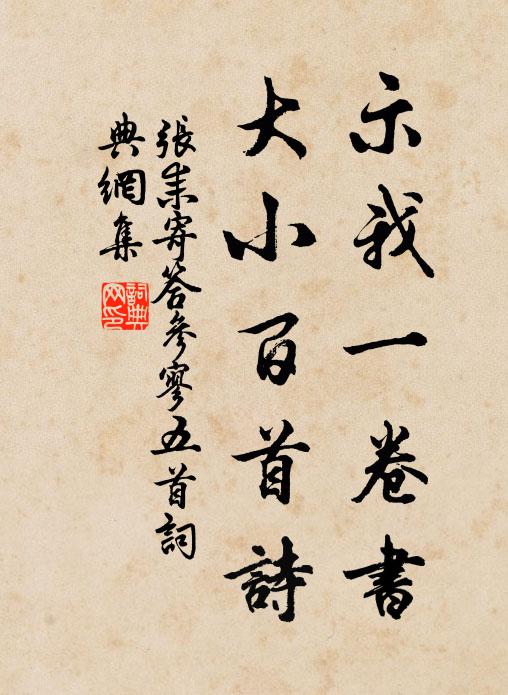 示我一卷書
大小百首詩
張耒寄答參寥五首詞
典網集
詞典網印